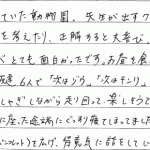 ていた動物園。先生が出すク
を考えたり、正解すると大喜び。
べとても面白かったです。お昼を食
達6人で「次はゾウ」「次はキリン」
しゃぎしながら走り回って、楽しそうで
に座った途端にぐっすり寝てしまいました
ンフレット」を広げ、得意気に話をしてい